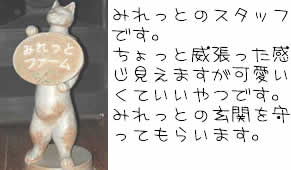 みれっと
ファーム
みれっとのスタッフ
です。
ちょっと威張った感
じ見えますが可愛い
くていいやつです。
みれっとの玄関を守
ってもらいます。